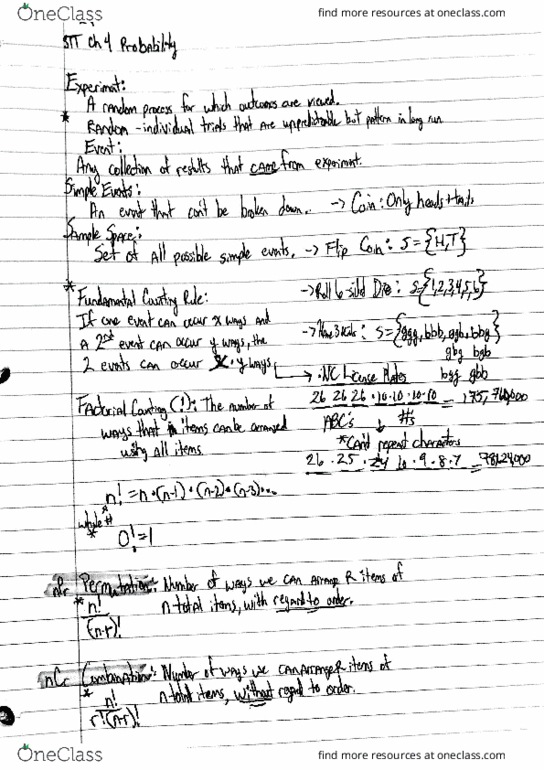 OneClass
find more resources at oneclass.com
STT Ch 4 Probability
Experiment:
A random process for which outcomes are viewed.
* Random - individual trials that are unpredictable but pattern in long run
Event:
Any collection of results that came from experiment.
Simple Events:
An event that can't be broken down. -> Coin: Only heads + tails
Sample Space:
Set of all possible simple events. -> Flip Coin: S = {H,T}
* Fundamental Counting Rule: -> Roll 6-sided Die: S={1,2,3,4,5,6}
If one event can occur x ways and
a 2nd event can occur y ways, the -> Have 3 kids: S = {ggg, bbb, ggb, bbg
gbg bgb
2 events can occur x · y ways bgg gbb
-> · NC License Plates
Factorial Counting (!): The number of 26 26 26 · 10 · 10 · 10 · 10 = 175,760,000
ways that n items can be arranged ABC's #s
using all items *Can't repeat characters
26 · 25 · 24 10 · 9 · 8 · 7 = 78,624,000
n! = n · (n-1) · (n-2) · (n-3)...
whole #
* 0! = 1
nPr Permutation: Number of ways we can arrange R items of
* n!/(n-r)! n total items, with regard to order.
nCr Combination: Number of ways we can arrange R items of
* n!/r!(n-r)! n total items, without regard to order.
OneClass
find more resources at oneclass.com